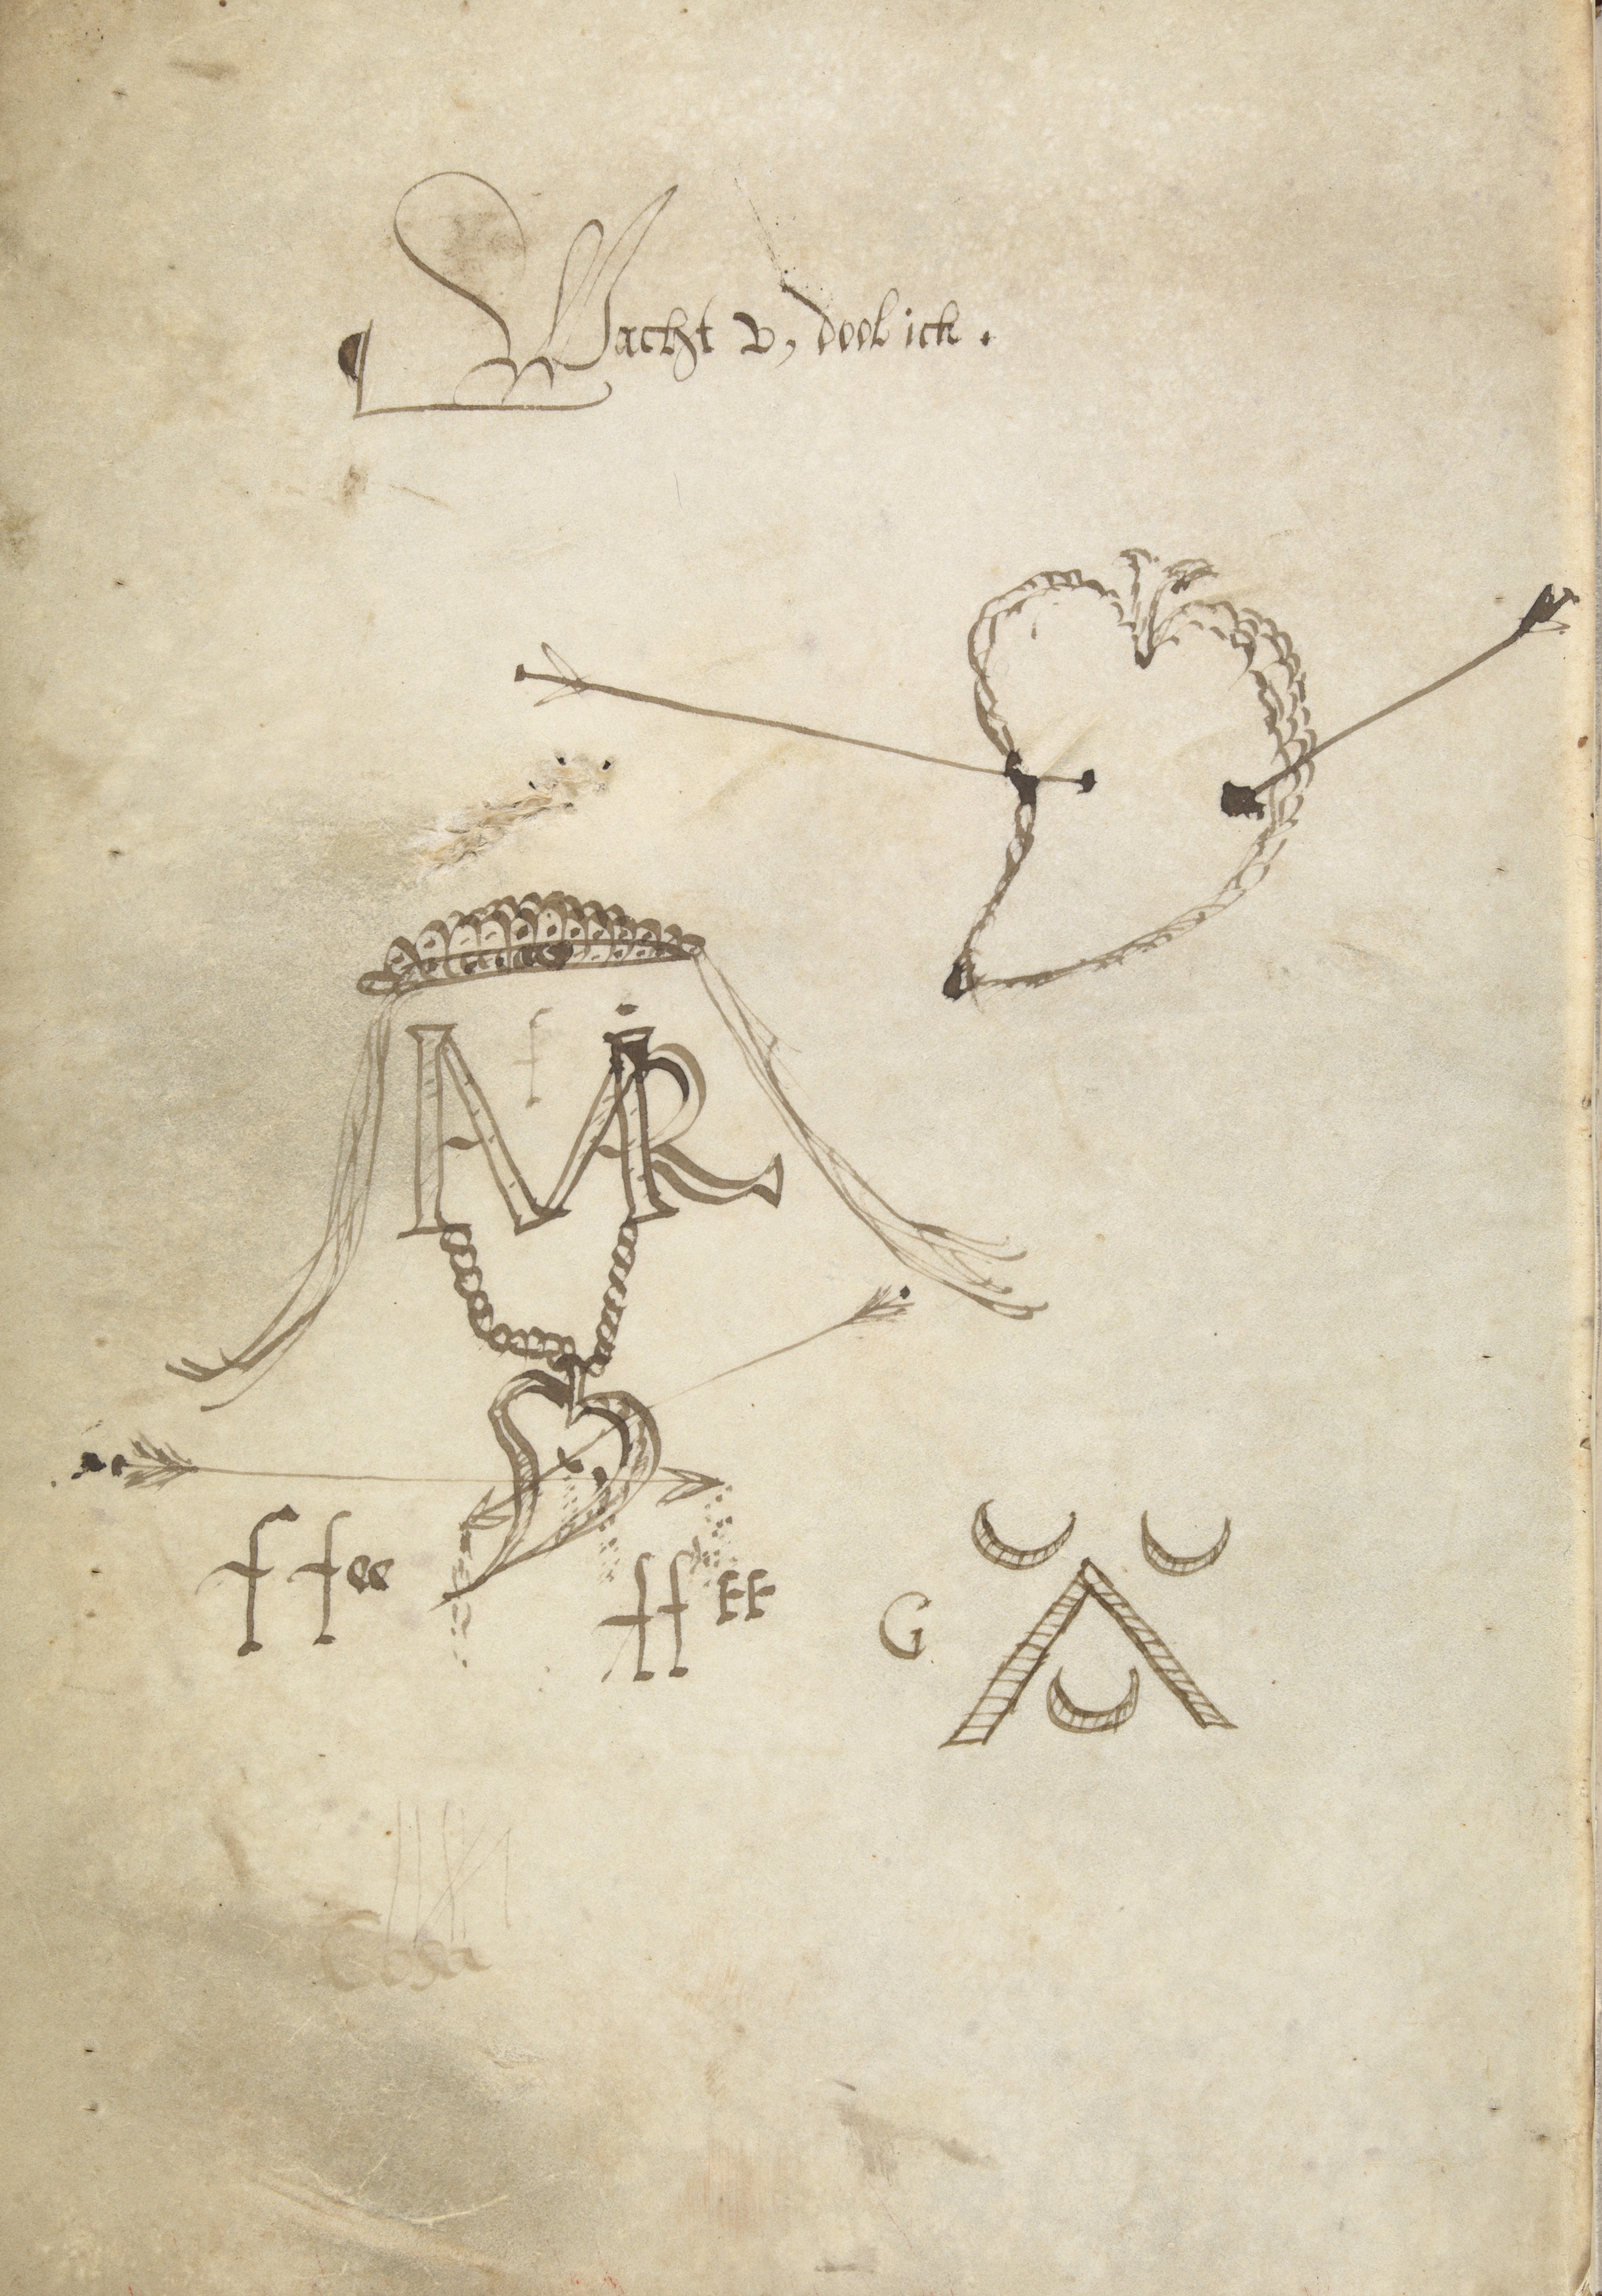 Wacht v, dool ick.
f
MR
f fee
ff EE
G